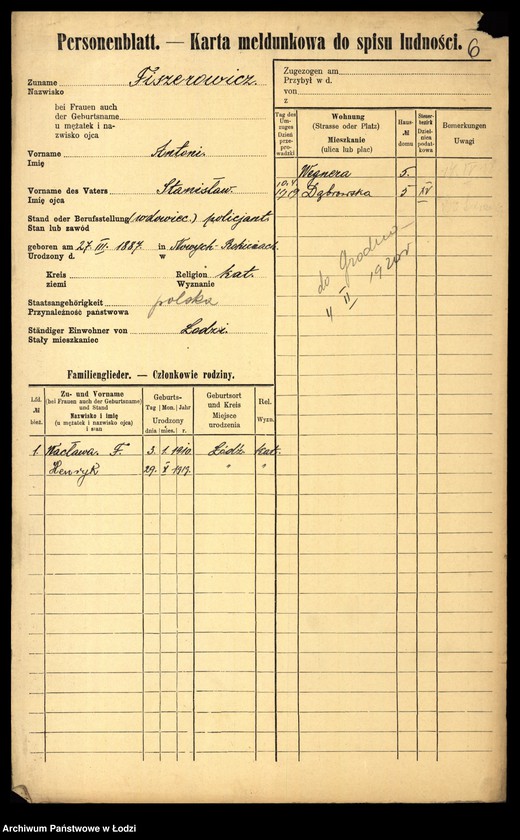 Personenblatt. — Karta meldunkowa do spisu ludności. 6
Zuname Fiszerowicz
Nazwisko
bei Frauen auch
der Geburtsname
u mężatek i na-
zwisko ojca
Vorname Antoni.
Imię
Vorname des Vaters Stanisław.
Imię ojca
Stand oder Berufsstellung (wdowiec) policjant
Stan lub zawód
geboren am 27. III. 1887. in Nowych-
Urodzony d. w
Kreis Religion kat.
ziemi Wyznanie
Staatsangehörigkeit polska
Przynależność państwowa
Ständiger Einwohner von Łodzi.
Stały mieszkaniec
Zugezogen am
Przybył w d.
von
z
Tag des Um-zuges Dzień prze-prowadzki
Wohnung (Strasse oder Platz) Mieszkanie (ulica lub plac)
Haus-№ domu
Steuer-bezirk Dziel-nica podat-kowa
Bemerkungen Uwagi
Wegnera 5.
10.V. 1919 Dąbrowska 5 XV
do Grodna
4 II 1920r
Familienglieder. — Członkowie rodziny.
Lfd. № bież.
Zu- und Vorname (bei Frauen auch der Geburtsname) und Stand Nazwisko i imię (u mężatek i nazwisko ojca) i stan
Geburts-Tag Mon. Jahr Urodzony dnia mies. r.
Geburtsort und Kreis Miejsce urodzenia
Rel. Wyzn.
1. Wacława F. 3. 1. 1910. Łódź kat.
Henryk 29. V 1917. " "
Archiwum Państwowe w Łodzi